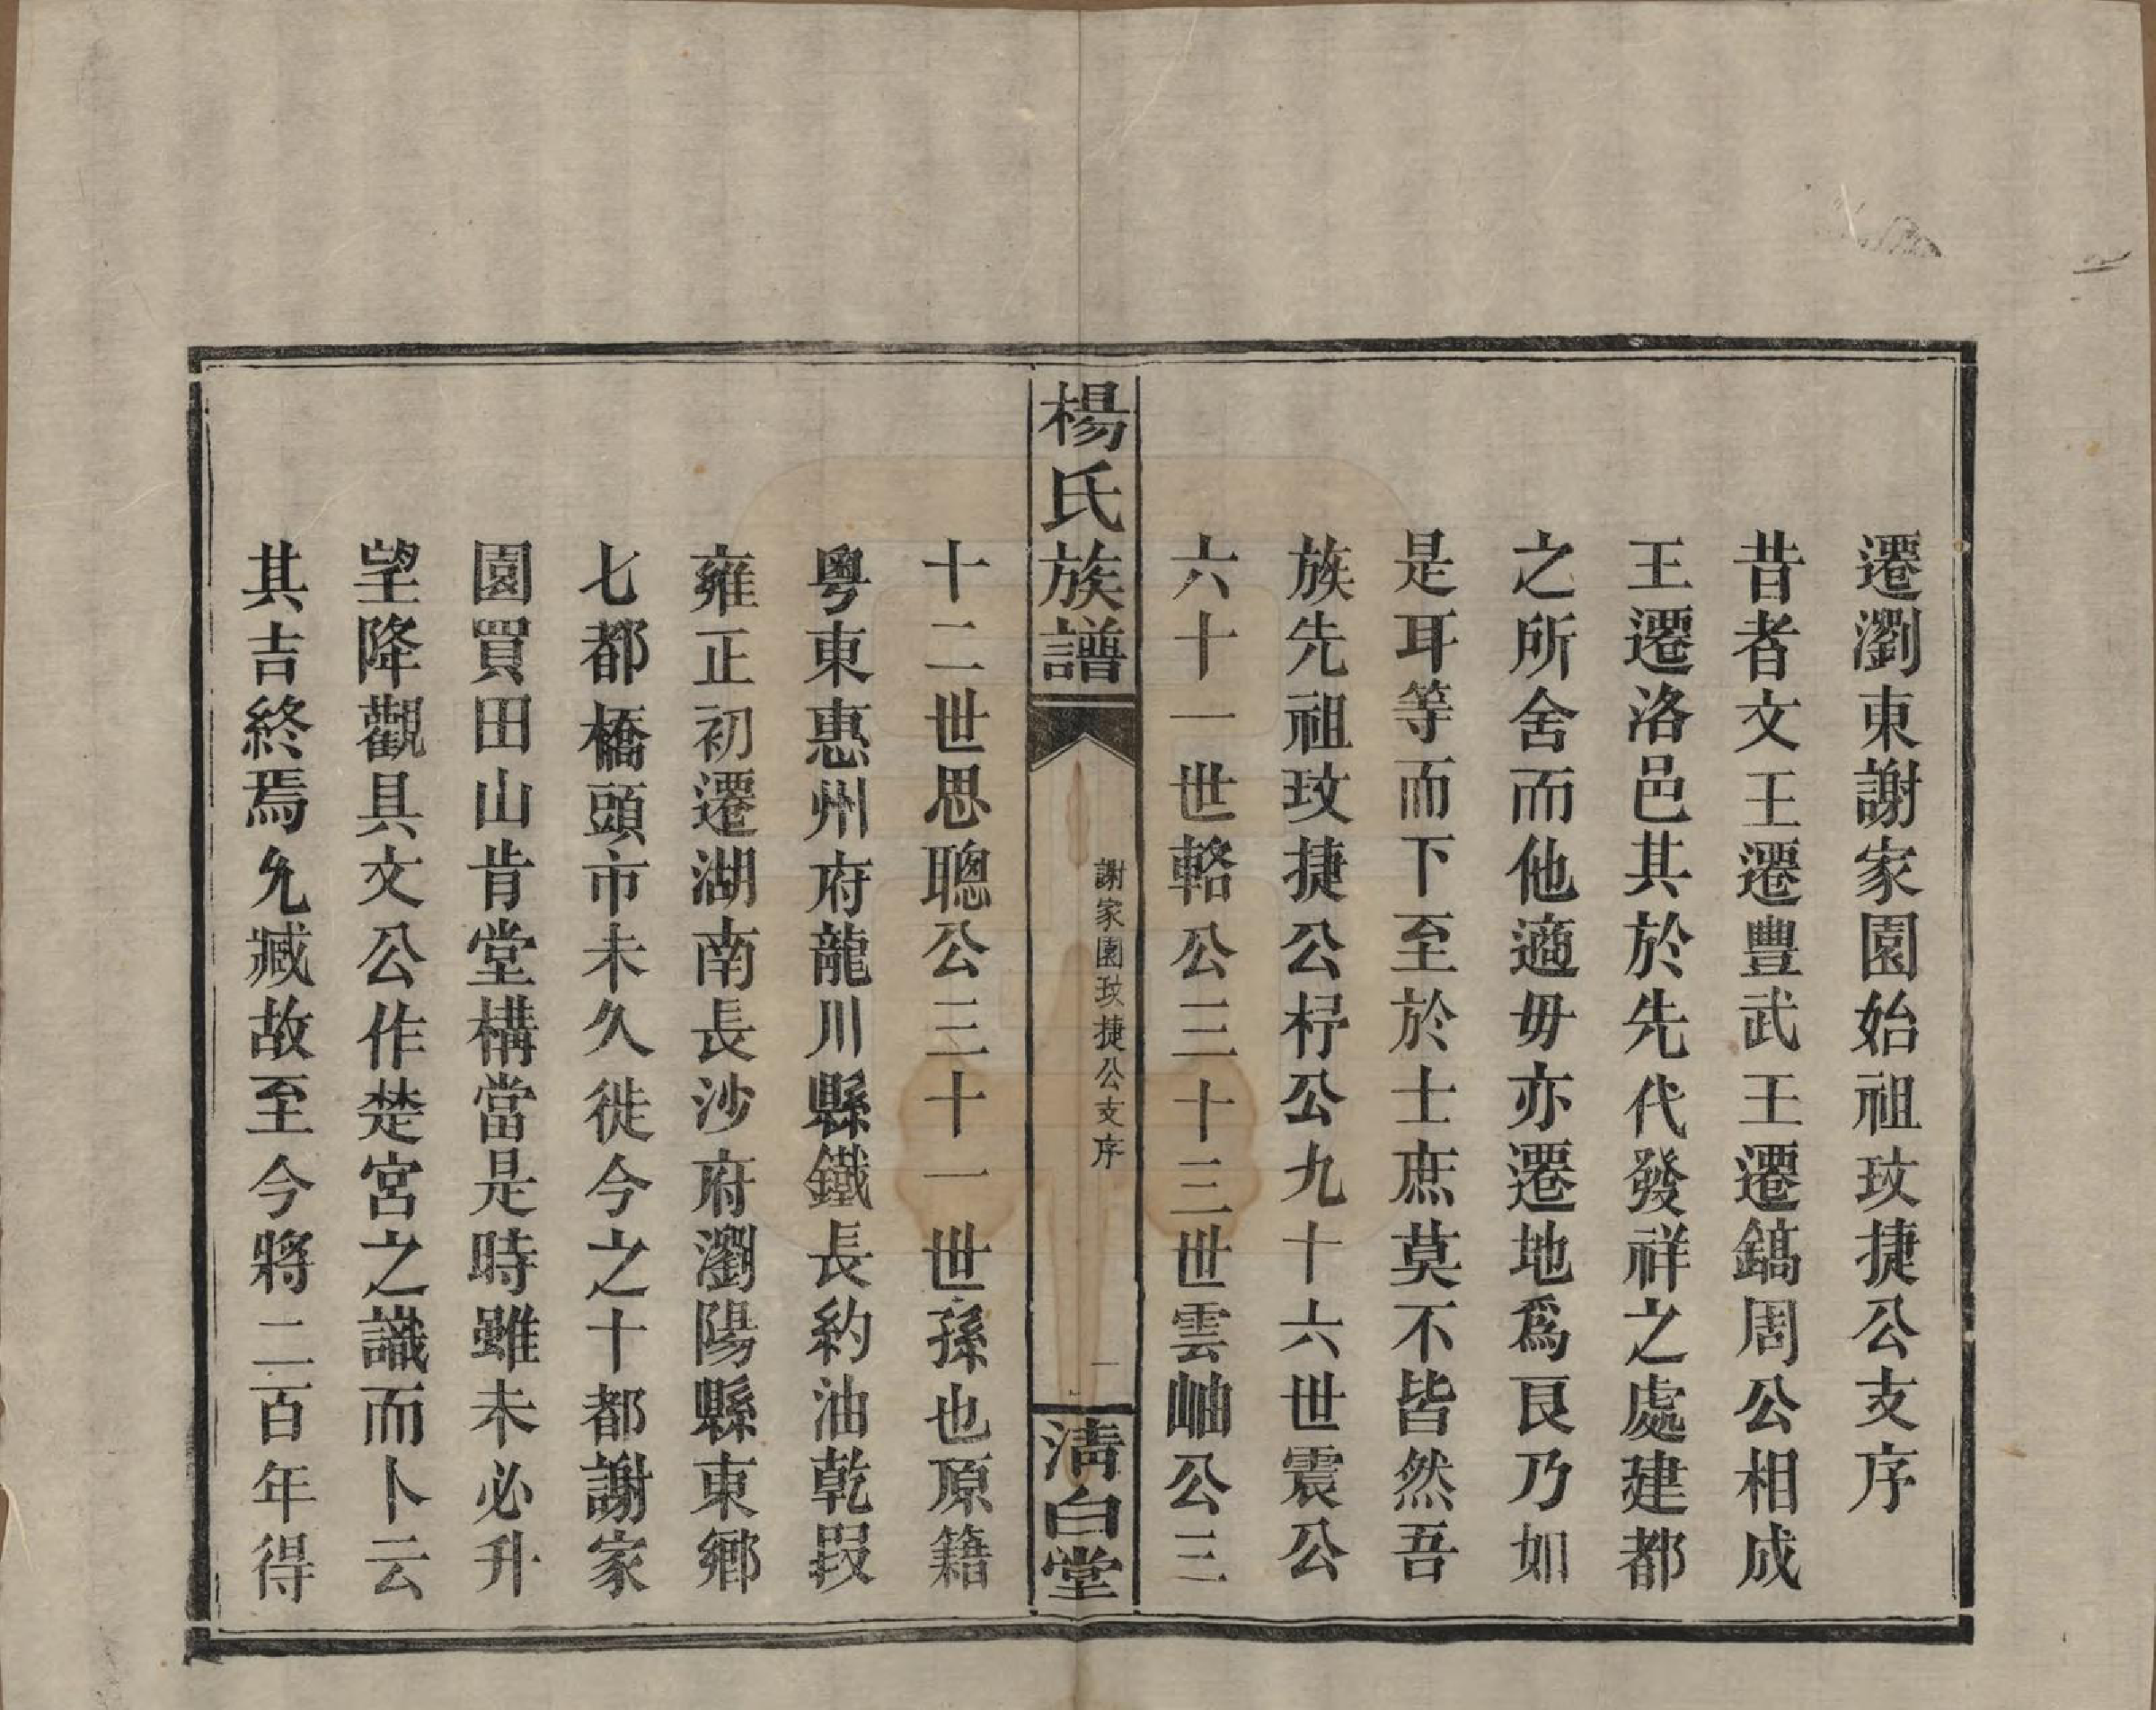 遷瀏東謝家園始祖玟捷公支序
昔者文王遷豐武王遷鎬周公相成
王遷洛邑其於先代發祥之處建都
之所舍而他適毋亦遷地爲良乃如
是耳等而下至於士庶莫不皆然吾
族先祖玟捷公杍公九十六世震公
六十一世輅公三十三世雲岫公三
楊氏族譜
謝家園玟捷公支序
一
清白堂
十二世思聰公三十一世孫也原籍
粤東惠州府龍川縣鐵長約油乾叚
雍正初遷湖南長沙府瀏陽縣東鄉
七都橋頭市未久徙今之十都謝家
園買田山肯堂構當是時雖未必升
望降觀具文公作楚宮之識而卜云
其吉終焉允臧故至今將二百年得